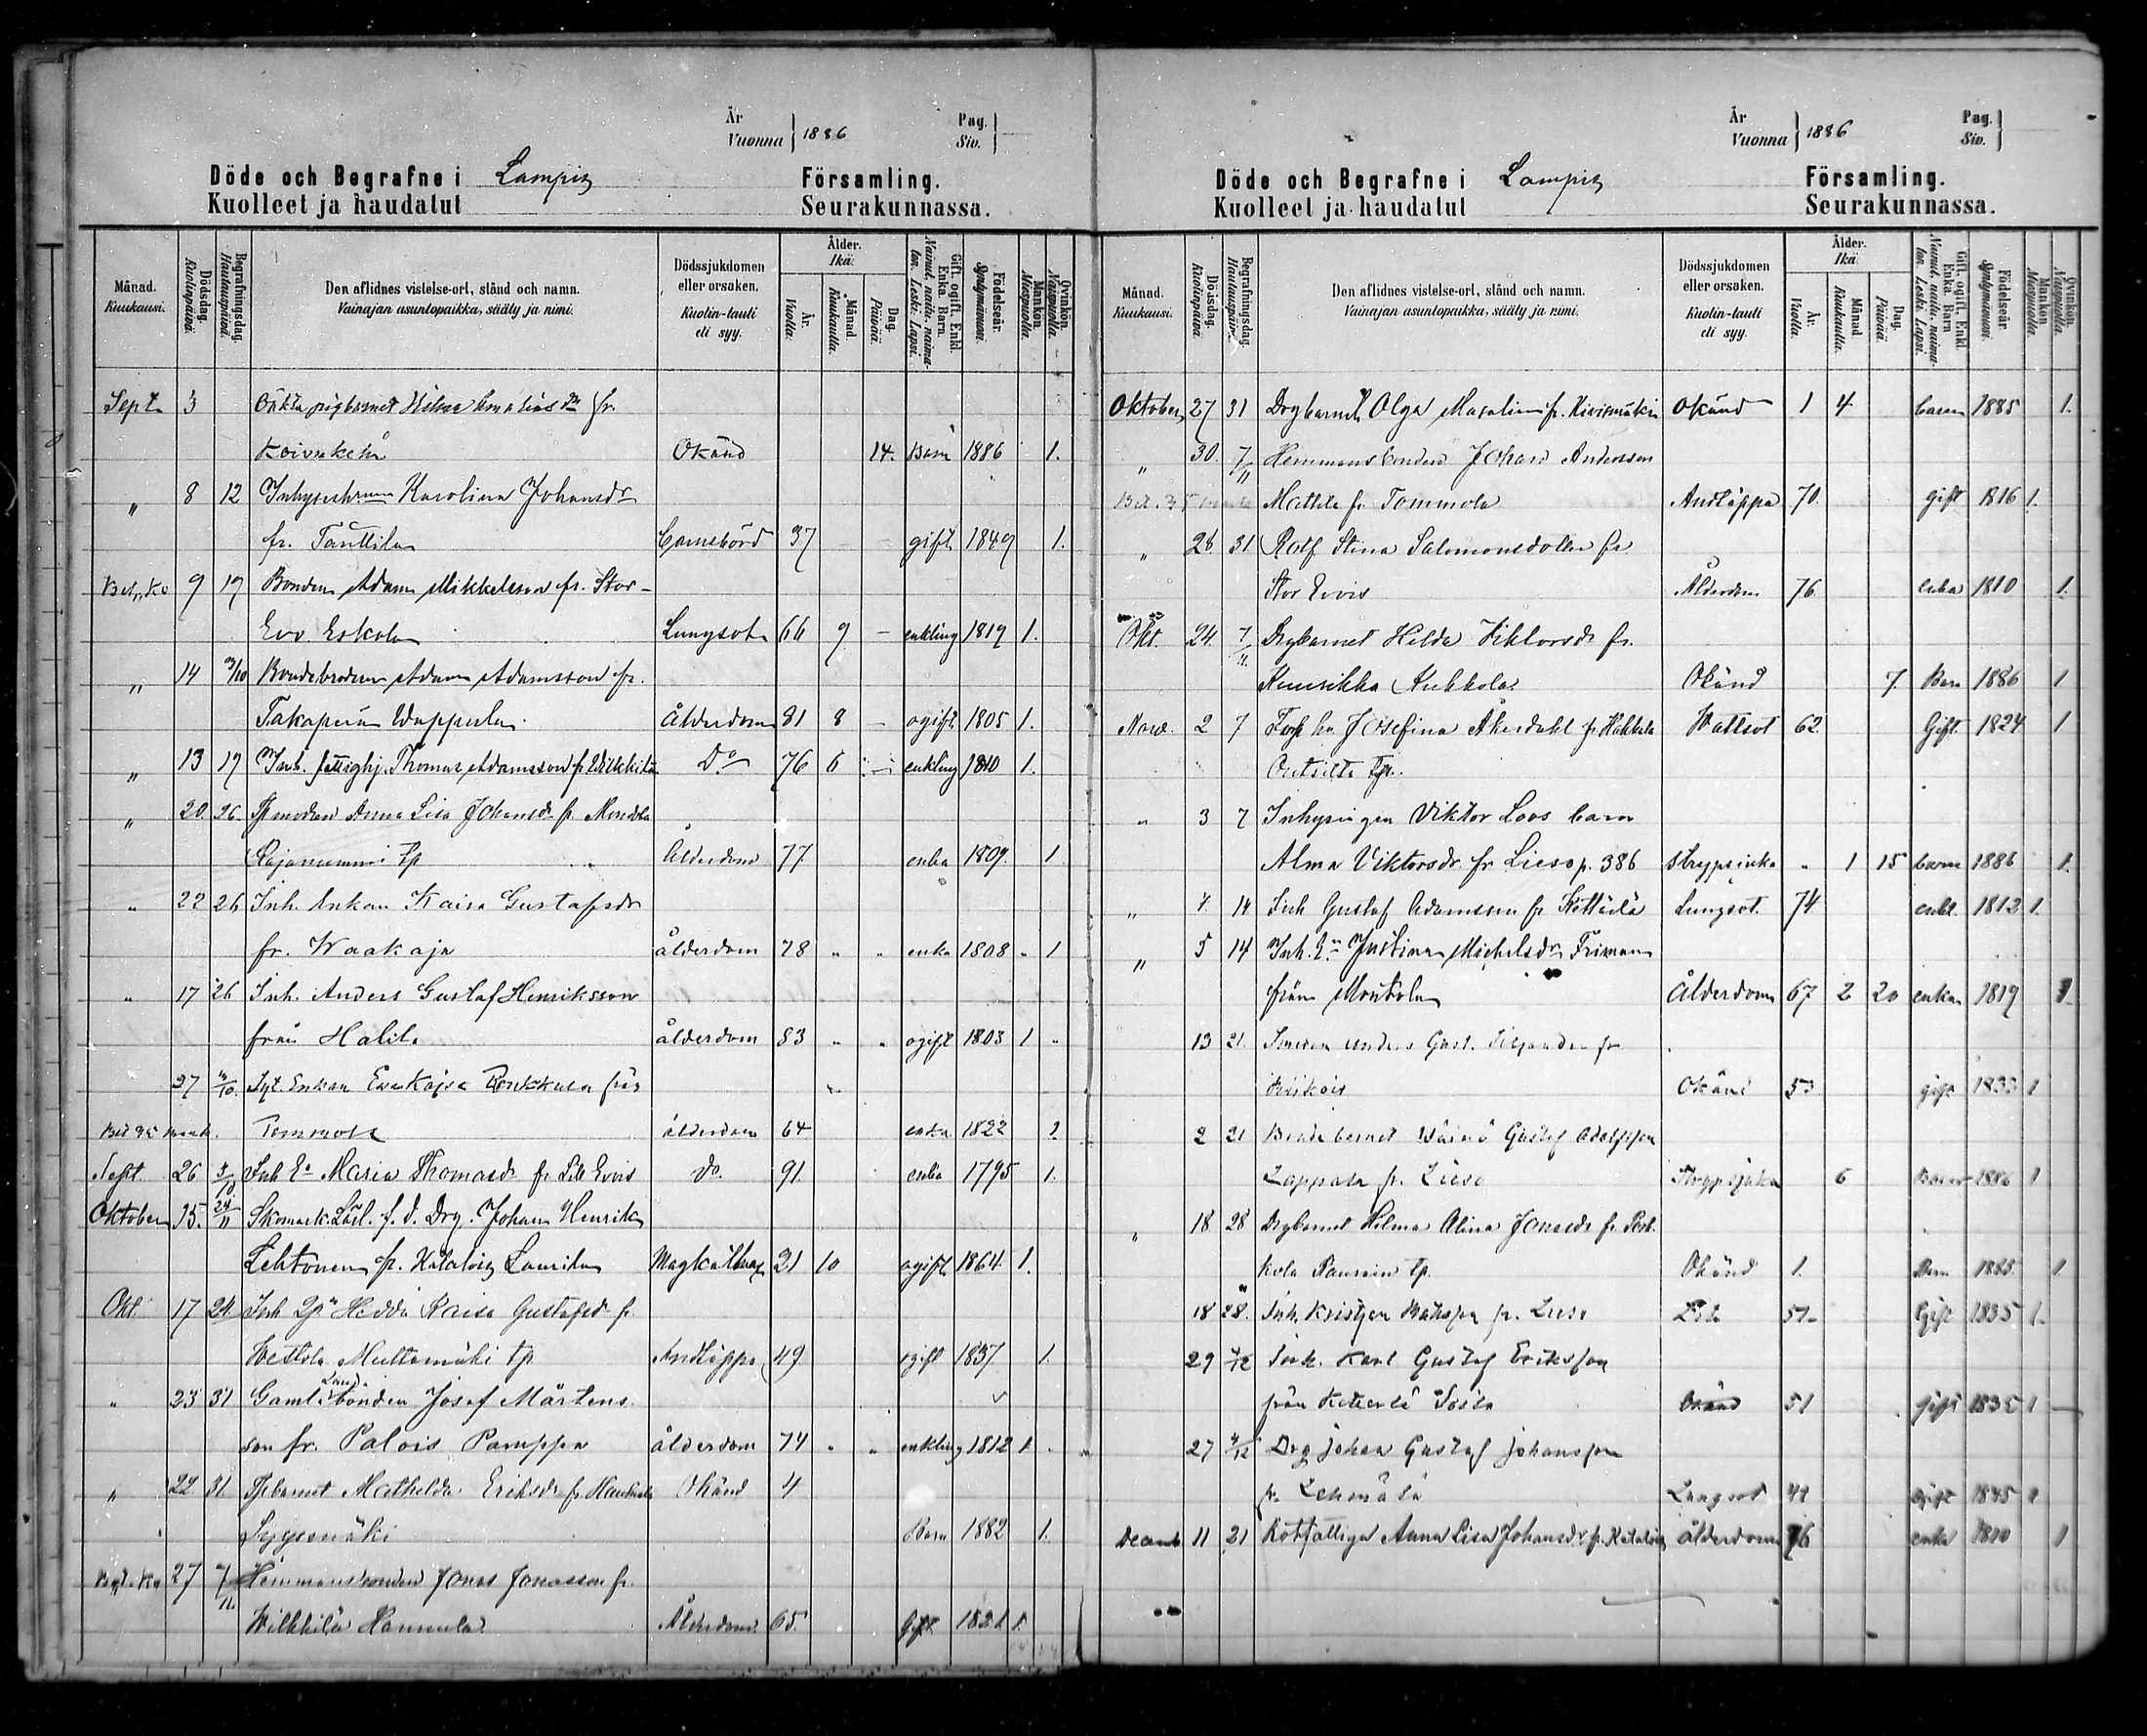 År
Vuonna } 1886
Pag.
Siv. }
Döde och Begrafne i Lampis Församling.
Kuolleet ja haudatut Seurakunnassa.
Månad. Kuukausi.
Dödsdag. Kuolinpäivä.
Begrafningsdag. Hautauspäivä.
Den aflidnes vistelse-ort, stånd och namn.
Vainajan asuntopaikka, sääty ja nimi.
Dödssjukdomen eller orsaken.
Kuolin-tauti eli syy.
Ålder. Ikä.
År. Vuotta.
Månad. Kuukautta.
Dag. Päivää.
Gift, ogift, Enkl. Enka. Barn.
Nainut, naitu, naimaton. Leski. Lapsi.
Födelseår. Syntymävuosi.
Mankön. Miespuolta.
Qvinkön. Naispuolta.
Sept. 3 Oäkta pigbarnet Hilma fr.
Okänd 14. Barn 1886 1.
" 8 12 Karolina Johansdr
fr. Tanttila Barnsbörd 37 gift 1849 1.
9 19 Bonden Adam Mikkelsson fr. Stor-
Evo. Eskola Lungsot 66 9 — enkling 1819 1.
" 14 3/10 Bondebrodren Adam Adamsson fr.
Takaperä Wapperla Ålderdom 81 8 — ogift 1805 1.
" 13 19 Inh. fattighj. Thomas Adamsson fr. Wilkkilä Do 76 6 enkling 1810 1.
" 20. 26 Tpmodren Anna Lisa Johansdr fr. Mondola
Rajanummi tp Ålderdom 77 enka 1809. 1
" 22 26 Inh. Enkan Kaisa Gustafsdr
fr. Waakaja ålderdom 78 " " enka 1808 " 1
" 17 26 Inh. Anders Gustaf Henriksson
från Halila ålderdom 83 " " ogift 1803 1 "
27 4/10. Syt. Enkan Eva Kajsa från
Tommola ålderdom 64 enka 1822 1
Sept. 26 3/10 Inh Ea Maria Thomasdr fr. Evois do. 91. enka 1795 1.
Oktober 15. 24/11 f. d. Drg. Johan Henrik
Lehtonen fr. Katalois Laurila 21 10 ogift 1864 1.
Okt 17 24. Inh Hedda Kaisa Gustafsdr fr.
Westola Multamäki tp Andtäppa 49 ogift 1837 1.
" 23 31 Gamla Landbonden Josef Mårtens
son fr. Palois Pamppa ålderdom 74 " " enkling 1812 1. "
" 22 31 Tpbarnet Mathilda Eriksdr fr. Okänd 4
Syysmäki Barn 1882 1.
27 7/11. Hemmansbonden Jonas Jonasson fr.
Wilkkilä Hannula Ålderdom 65. Gift 1821 1.
År
Vuonna } 1886
Pag.
Siv. }
Döde och Begrafne i Lampis Församling.
Kuolleet ja haudatut Seurakunnassa.
Månad. Kuukausi.
Dödsdag. Kuolinpäivä.
Begrafningsdag. Hautauspäiv.
Den aflidnes vistelse-ort, stånd och namn.
Vainajan asuntopaikka, sääty ja nimi.
Dödssjukdomen eller orsaken.
Kuolin-tauti eli syy.
Ålder. Ikä.
År. Vuotta.
Månad. Kuukautta.
Dag. Päivää.
Gift, ogift, Enkl. Enka. Barn
Nainut, naitu, naimaton. Leski. Lapsi.
Födelseår. Syntymävuosi.
Mankön. Miespuolta.
Qvinkön. Naispuolta.
Oktober 27 31 Drgbarnet Olga Maralin fr. Kivismäki Okänd 1 4 barn 1885 1.
" 30. 7/11 Hemmansbonden Johan Andersson
Mattila fr Tommola Andtäppa 70. gift 1816 1.
" 26 31 Rotf Stina Salomonsdotter fr
Stor Evois Ålderdom 76 enka 1810 1.
Okt. 24. 7/11. Drgbarnet Hilda Viktorsdr fr.
Kuusikka Kukkola Okänd 7. Barn 1886 1
Nov. 2 7 Josefina Åkerdahl fr Hakkala Wattsot 62. Gift. 1824 1
tp.
" 3 7 Inhysingen Viktor Loos barn
Alma Viktorsdr fr Lieso p. 386 Strypsjuka " 1 15 barn 1886 1.
" 4. 14 Inh Gustaf Adamsson fr Kätkärlä Lungsot. 74. enkl. 1812 1.
" 5 14 Inh. En Justina Michelsdr Friman
från Montola Ålderdom 67 2 20 enka 1819 1.
13 21. Smeden Anders Gust. fr
Okänd 53 gift 1833 1
2 21 Bondebarnet Wäinö Gustaf Adolfsson
Lappala fr. Lieso Strypsjuka 6 Barn 1886 1
" 18 28 Drgbarnet Hilma Alina Jonasdr fr Pork-
kola tp. Okänd 1. Barn 1885. 1.
18 28. Inh. Kristian fr. Lieso 51 Gift 1835 1.
29 Inh. Karl Gustaf Eriksson
från Sosila Okänd 51 gift 1835 1
27 Drg Johan Gustaf Johansson
fr. Lungsot 41 gift 1845 1
Decemb 11 21 Rotfattiga Anna Lisa Johansdr fr. Katalois ålderdom 76 enka 1810 1